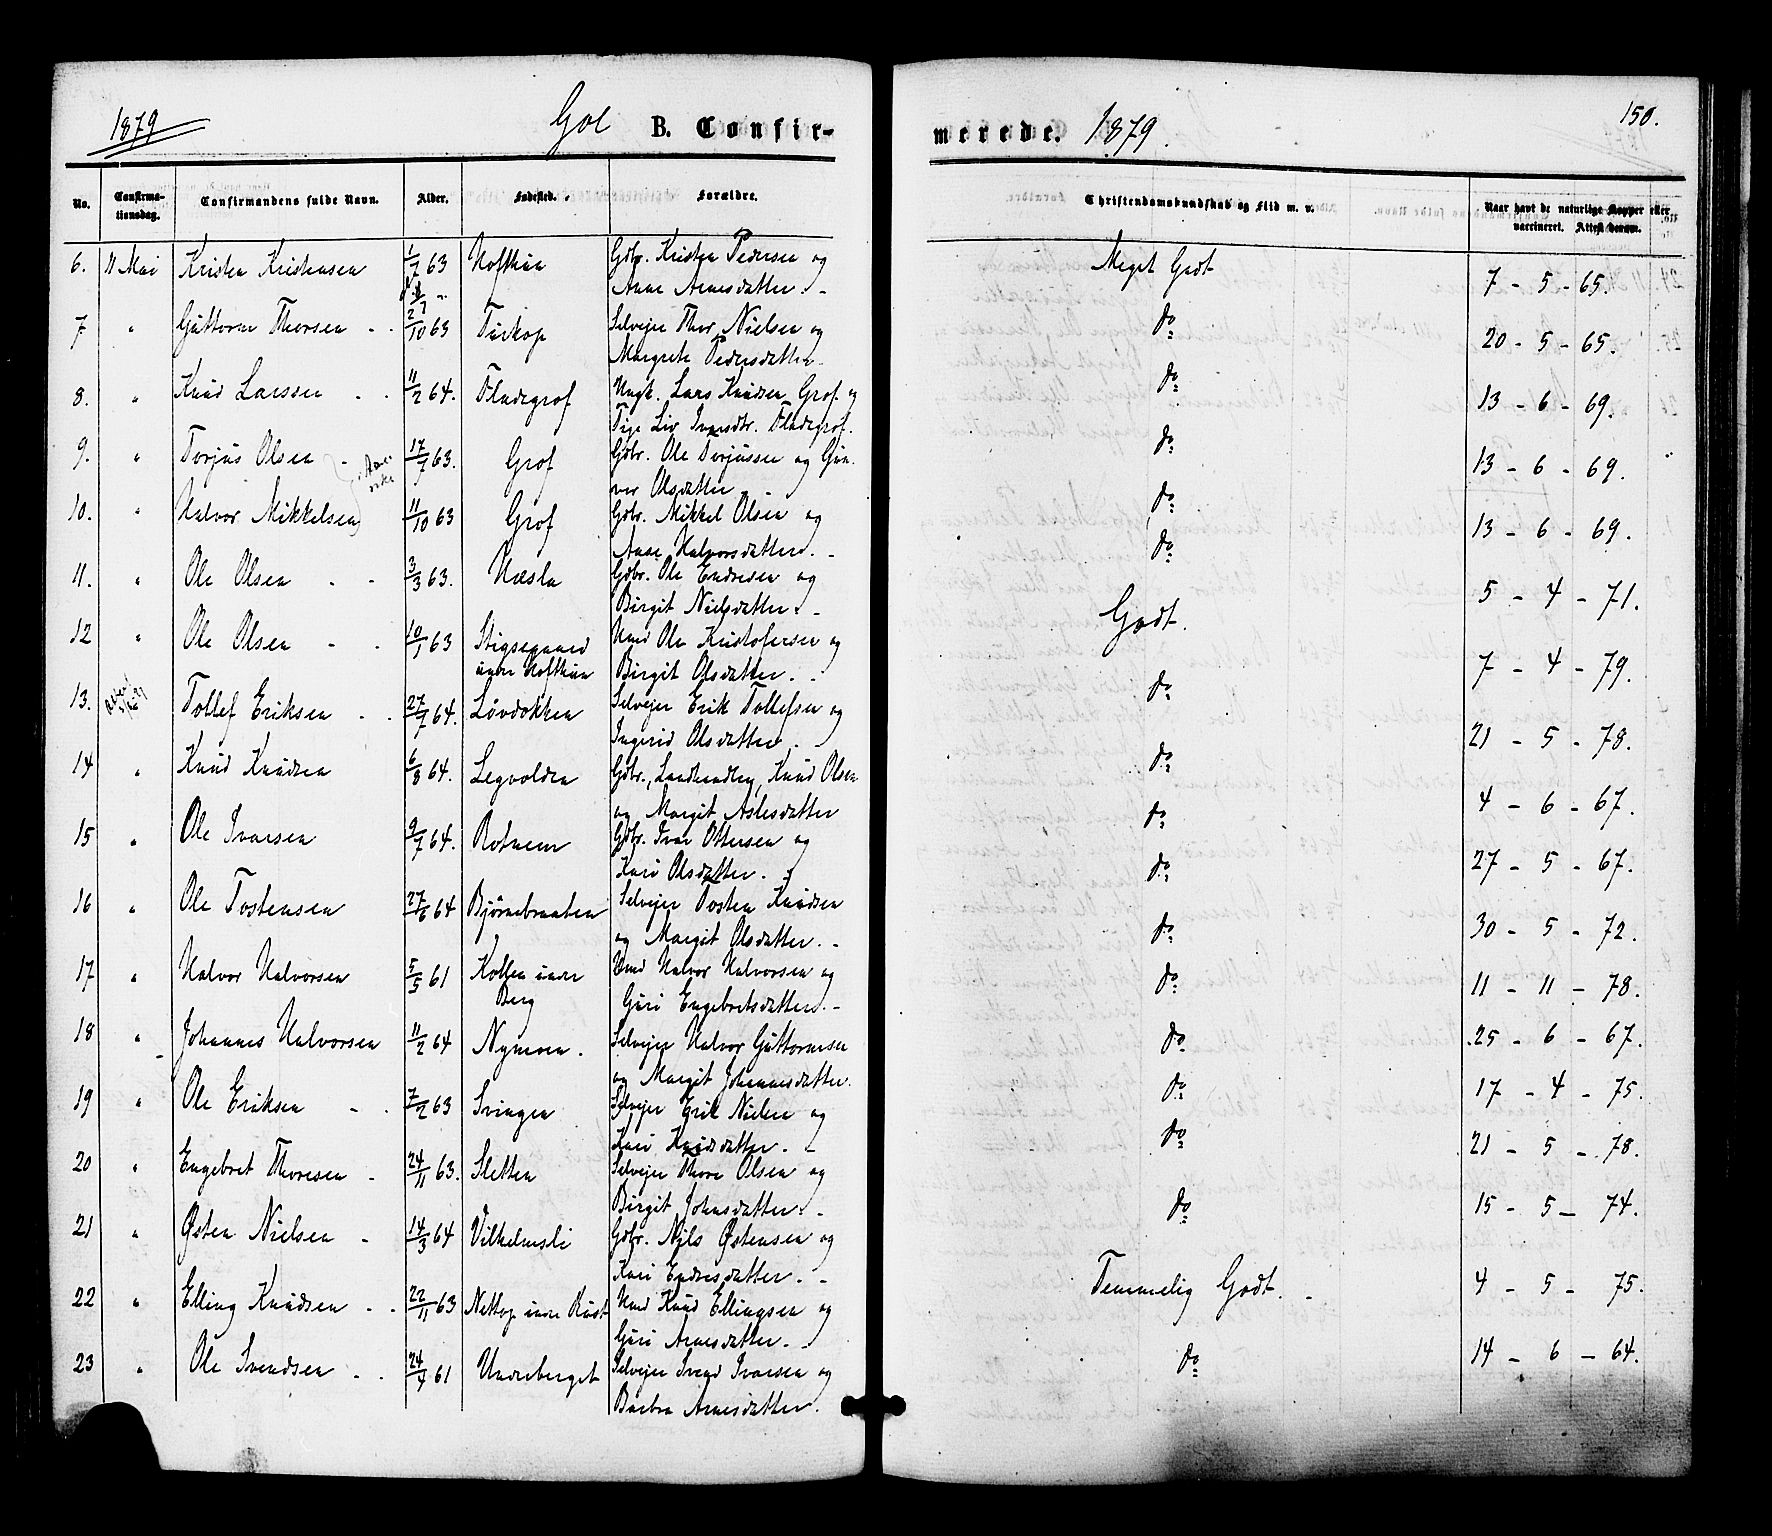 1879
Gol B. Confir-
merede. 1879.
150.
No. Confirma-tionsdag. Confirmandens fulde Navn. Alder. Fødested. Forældre. Christendomskundskab og Flid m. v. Naar havt de naturlige Kopper eller vaccineret. Attest derom.
6. 11 Mai Kristen Kristensen 1/7 63 Hofthun Gdbr. Kristen Pedersen og Meget Godt 7 - 5 - 65.
Anne Arnesdatter. -
7 " Guttorm Thorsen - - 27/10 63 Tuskop Selvejer Thor Nielsen og do 20 - 5 - 65.
Margrete Pedersdatter.
8. " Knud Larsen - - 11/2 64. Fladegrof Ungk. Lars Knudsen Grof og do 13 - 6 - 69.
Pige Liv Ivarsdtr. Fladegrof.
9. " Torjus Olsen - 17/7 63. Grof Gdbr. Ole Torjussen og Gun- do 13 - 6 - 69.
ver Olsdatter
10. " Halvor Mikkelsen 11/10 63 Grof Gdbr. Mikkel Olsen og do 13 - 6 - 69.
Anne Halvorsdatter. -
11. " Ole Olsen - - 3/3 63. Hæsla Gdbr. Ole Endresen og do 5 - 4 - 71.
Birgit Nielsdatter. -
12 " Ole Olsen - - 10/1 63 Stigsegaard Hmd Ole Kristofersen og Godt. 7 - 4 - 79.
under Hofthun Birgit Olsdatter. -
13. Tollef Eriksen - - 27/7 64. Løvdokken Selvejer Erik Tollefsen og do 21 - 5 - 78.
Ingerid Olsdatter. -
14 " Knud Knudsen 6/8 64. Legvolden Gdbr., Landhandler, Knud Olsen do 4 - 6 - 67.
og Margit Aslesdatter
15 " Ole Ivarsen 9/7 64. Rotneim Gdbr. Ivar Ottersen og do 27 - 5 - 67.
Kari Olsdatter. -
16 " Ole Tostensen 27/6 64 Bjørnebraaten Selvejer Tosten Knudsen do 30 - 5 - 72.
og Margit Olsdatter. -
17 " Halvor Halvorsen 5/5 61 Kollen under Hmd Halvor Halvorsen og do 11 - 11 - 78.
Berg Guri Engebretsdatter. -
18 " Johannes Halvorsen 11/2 64 Nymoen. Selvejer Halvor Guttormsen do 25 - 6 - 67.
og Margit Johannesdatter.
19 " Ole Eriksen - - 7/2 63 Svingen Selvejer Erik Nielsen og do 17 - 4 - 75.
Kari Knudsdatter. -
20 " Engebret Thoresen - 24/11 63. Sletten Selvejer Thore Olsen og do 21 - 5 - 78.
Birgit Johnsdatter. -
21 " Østen Nielsen - 14/3 64 Vilhelmsli Gdbr. Nils Østensen og do 15 - 5 - 74.
Kari Endresdatter. -
22 " Elling Knudsen - - 22/11 63 Nettop under Rust Hmd Knud Ellingsen og Temmelig Godt. - 4 - 5 - 75.
Guri Arnesdatter. -
23 " Ole Svendsen - - 24/4 61 Underberget Selvejer Svend Ivarsen og do 14 - 6 - 64.
Barbra Arnesdatter.